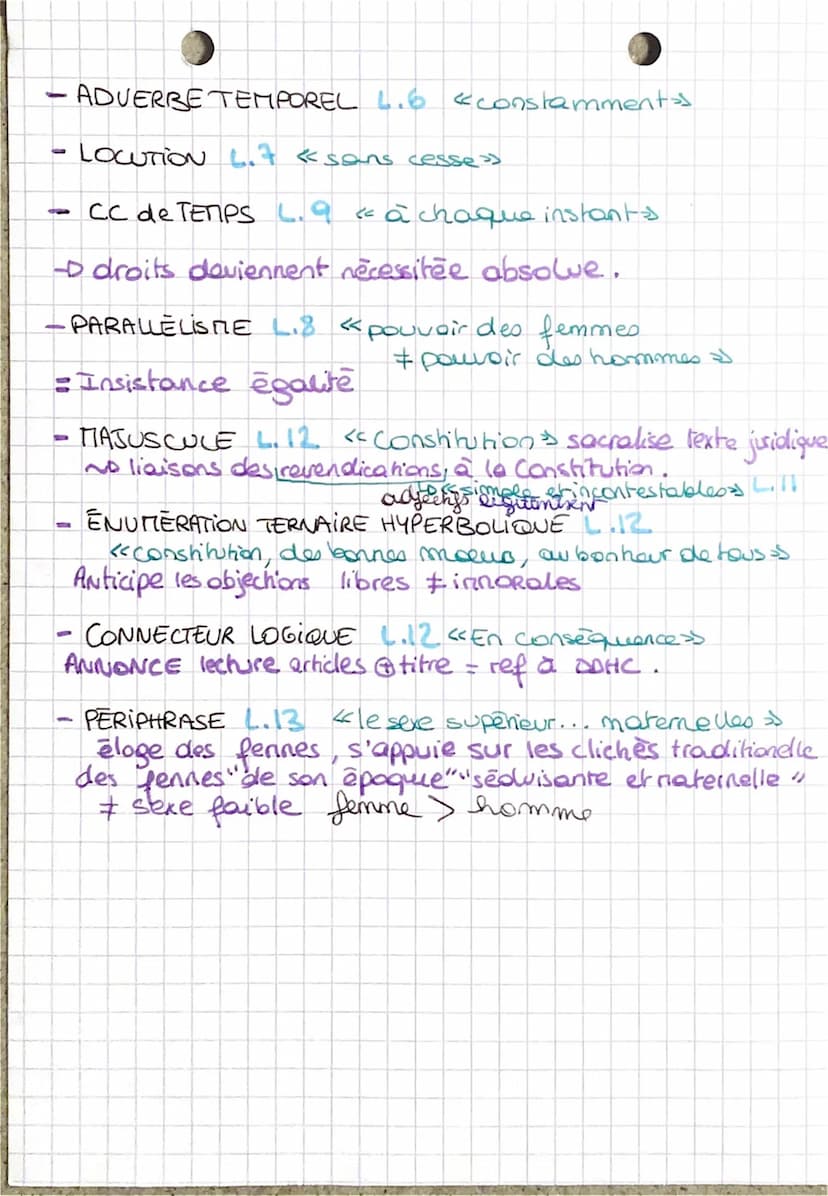 - ADVERBE TEMPOREL L.6 «constamment»
- LOCUTION L.7 «sans cesse»
- CC de TEMPS L.9 «à chaque instant»
→ droits deviennent nécessitée absolue.
- PARALLÉLISME L.8 «pouvoir des femmes
≠ pouvoir des hommes»
= Insistance égalité
- MAJUSCULE L.12 «Constitution» sacralise texte juridique
~> liaisons des revendications, à la Constitution.
↳ «simples et incontestables» L.11
adjectifs légitiment
- ÉNUMÉRATION TERNAIRE HYPERBOLIQUE L.12
«constitution, des bonnes moeurs, au bonheur de tous»
Anticipe les objections libres ≠ immorales
- CONNECTEUR LOGIQUE L.12 «En conséquence»
ANNONCE lecture articles ⊕ titre = ref à DDHC.
- PÉRIPHRASE L.13 «le sexe supérieur... maternelles»
éloge des femmes, s'appuie sur les clichés traditionelle
des femmes "de son époque" "séduisante et maternelle"
≠ sexe faible femme > homme